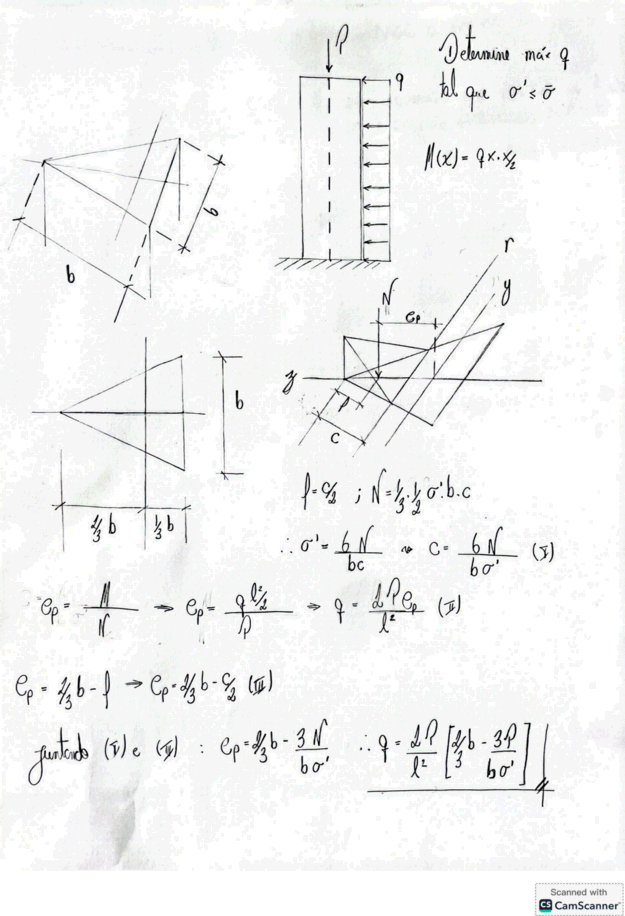 P
q
Determine máx q
tal que σ' ≤ σ̄
M(x) = qx·x/2
b
b
r
N
y
e_p
z
f
c
b
2/3 b
1/3 b
f = c/2 ; N = 1/3 · 1/2 σ' · b · c
∴ σ' = 6N/bc ⇝ c = 6N/bσ' (I)
e_p = M/N ⇒ e_p = (q l²/2)/P ⇒ q = 2Pe_p/l² (II)
e_p = 2/3 b - f → e_p = 2/3 b - c/2 (III)
juntando (I) e (III) : e_p = 2/3 b - 3N/bσ' ∴ q = 2P/l² [2/3 b - 3P/bσ']
Scanned with
CS CamScanner